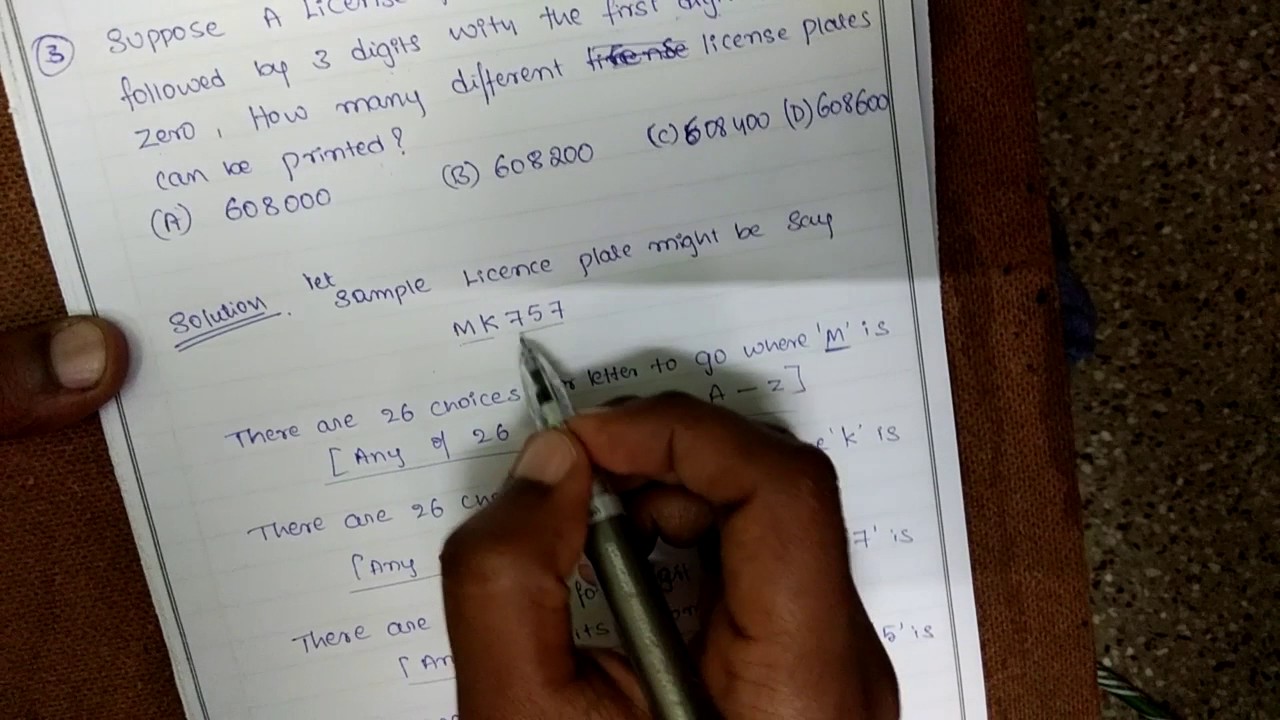 3 Suppose A License
followed by 3 digits with the first
zero, How many different license license plates
can be printed?
(A) 608000 (B) 608200 (C) 608400 (D) 608600
Solution. let Sample Licence plate might be say
MK757
There are 26 choices letter to go where 'M' is
[Any of 26 A - Z]
There are 26 'K' is
[Any 7' is
There are 5' is